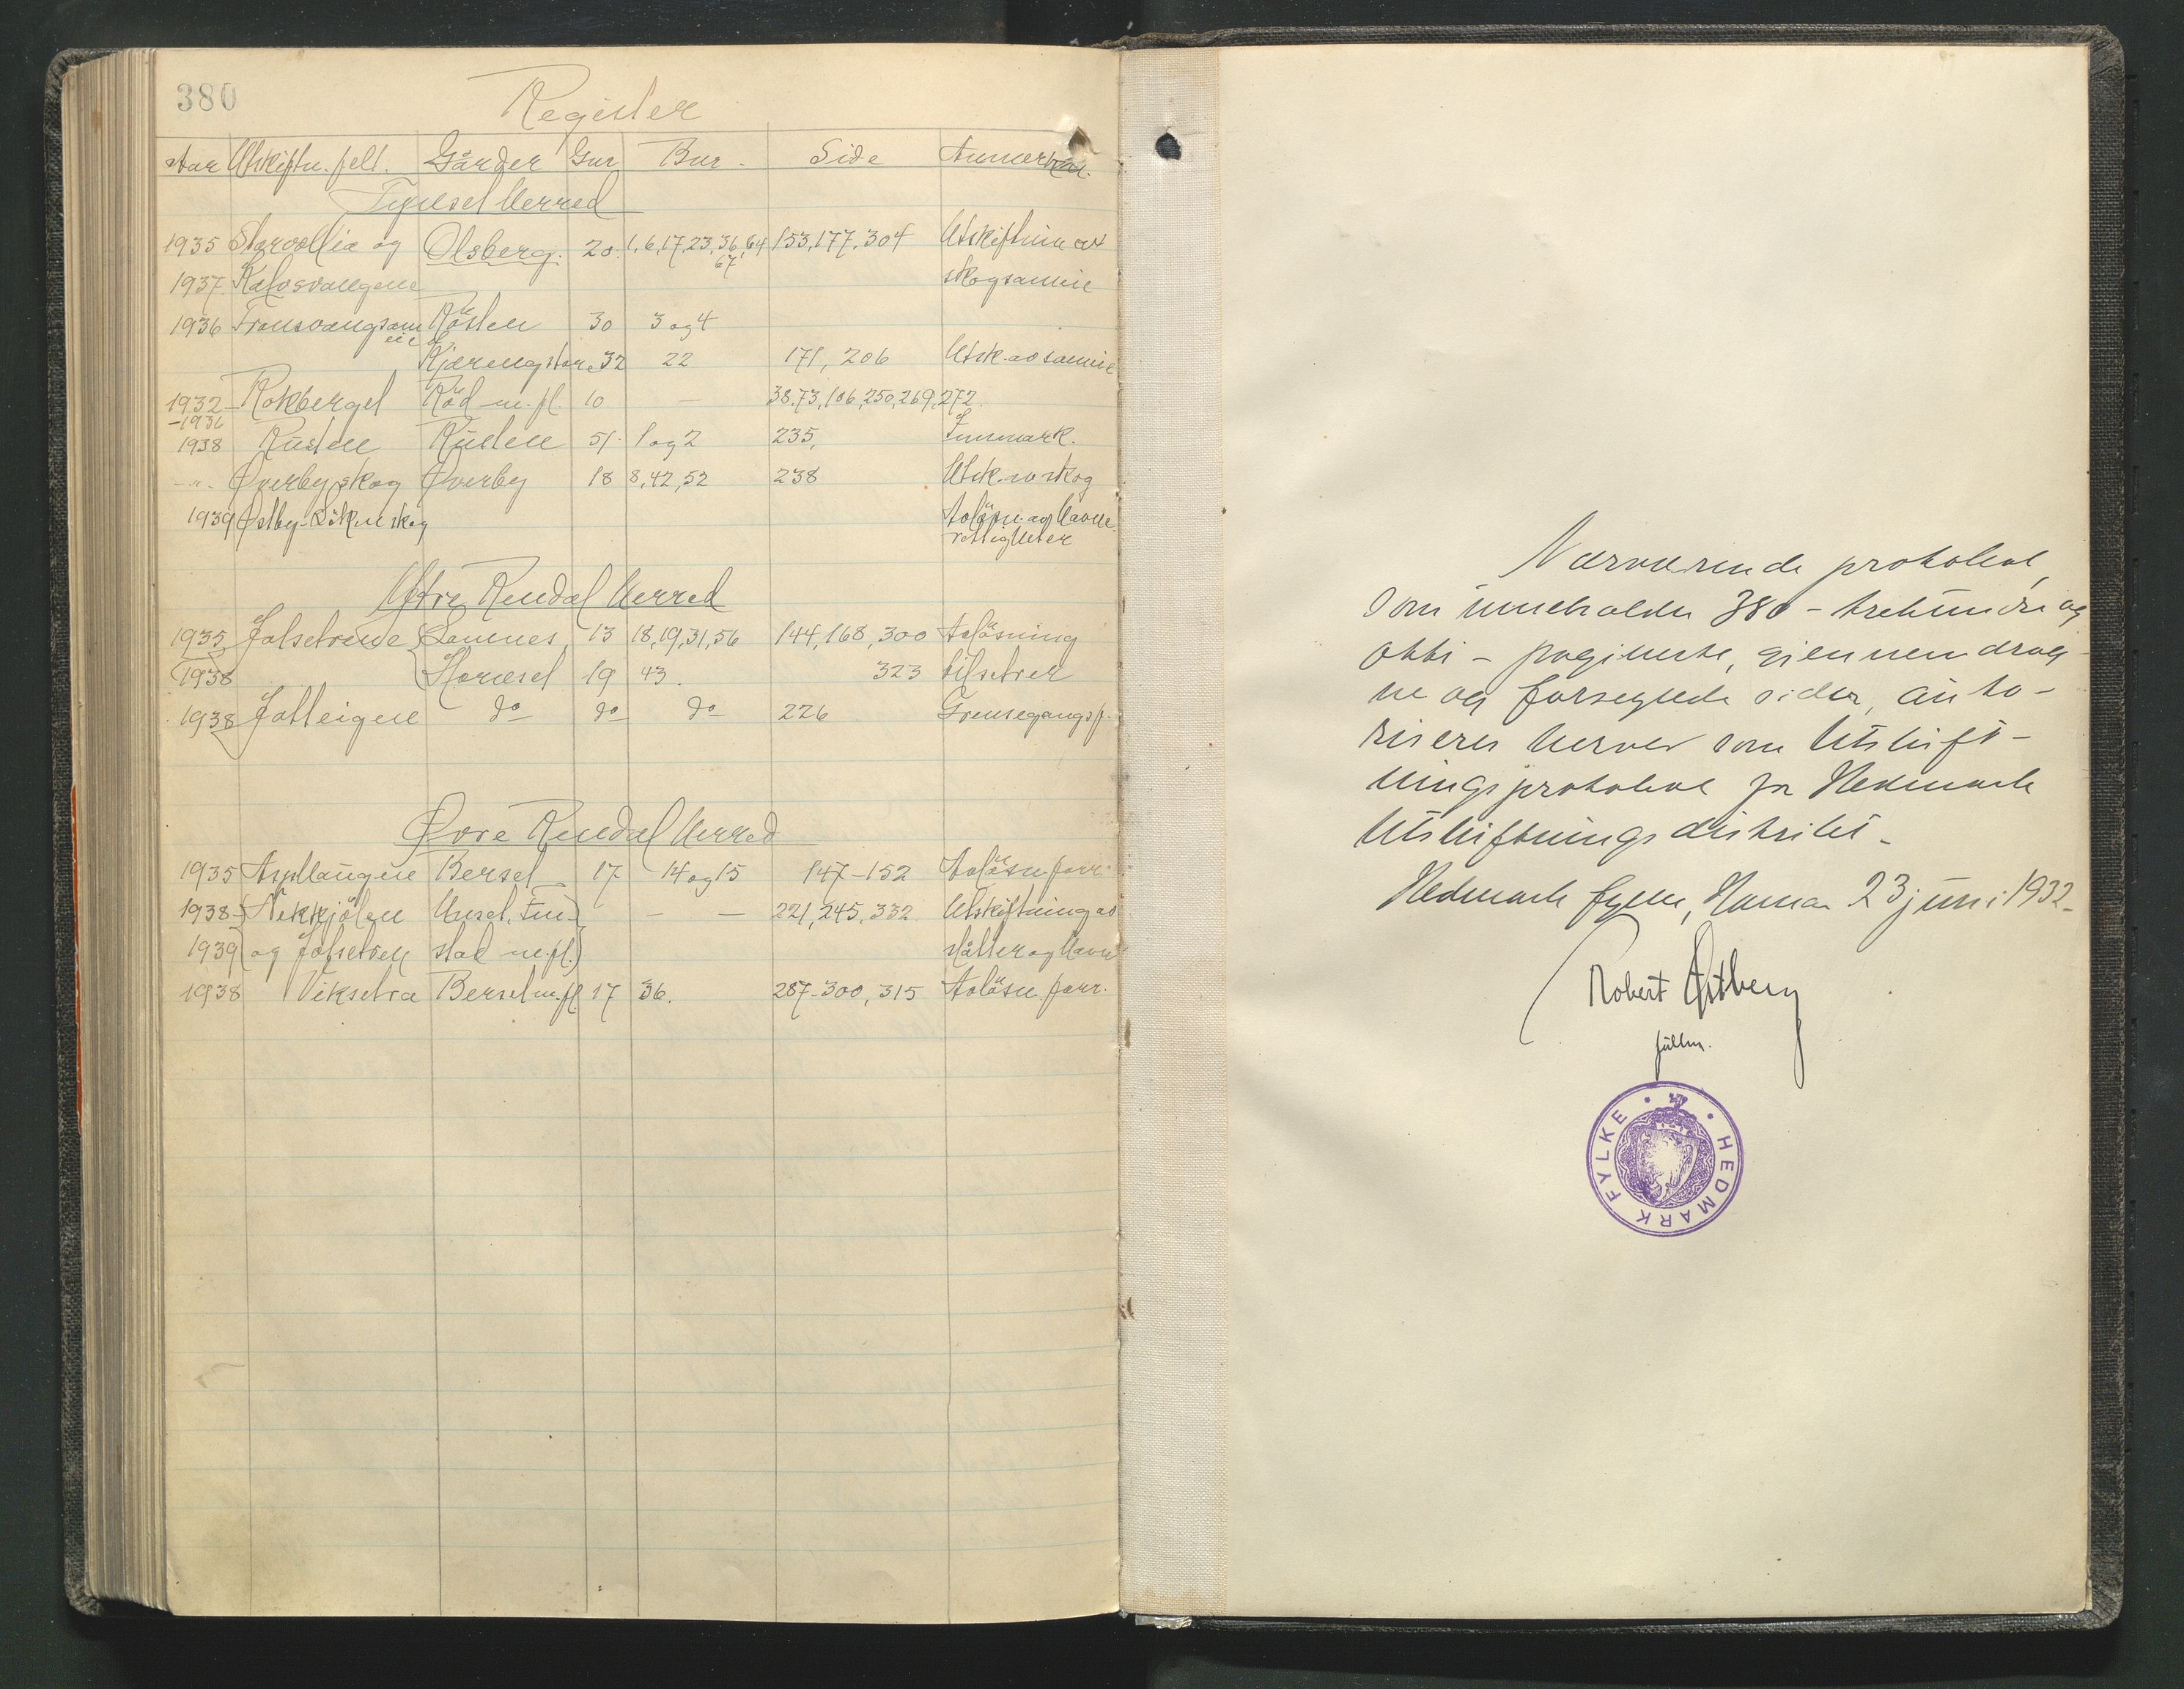 380
Register
Aar Utskiftn. felt. Gårder Gnr Bnr. Side Anmerkn.
Tynset Herred
1935 Starvollia og Olsberg. 20. 1, 6, 17, 23, 36, 64 153, 177, 304 Utskiftnin av
67
1937 Kalvsvangene skogsameie
1936 Tronsvangsam Rösten 30 3 og 4
eie
32 22 171, 206 Utsk. av sameie
1932- Rokberget Röd m.fl. 10 — 38, 73, 106, 250, 269, 272.
-1936
1938 Rusten Rusten 51. 1 og 2 235, Innmark.
-"- Øverby skog Øverby 18 8, 42, 52 238 Utsk. av skog
1939 Østby-Röken skog Avlösn. av havne
rettigheter
Ytre Rendal Herred
1935 Jotsetrene Lomnes 13 18, 19, 31, 56 144, 168, 300 Avlösning
1938 Hornset 19 43. 323 tilsetrer
1938 Jotteigen do do do 226 Grensegangsf.
Øvre Rendal Herred
1935 Asphaugene Berset 17 14 og 15 147-152 Avlösn. forr.
1938- Nekkjölen Unset, Fin- — — 221, 245, 332 Utskiftning av
1939 og Jotsetren stad m.fl. slåtter og havn
1938 Viksetra Berset m.fl 17 36. 287-300, 315 Avlösn. forr.
Nærværende protokol,
som inneholder 380 - trehundre og
otti - paginerte, gjennemdrag-
ne og forseglede sider, auto-
riseres herved som Utskift-
ningsprotokol for Hedmark
Utskiftningsdistrikt.
Hedmark fylke, Hamar 23 juni 1932.
Robert Østberg
fullm.
HEDMARK FYLKE